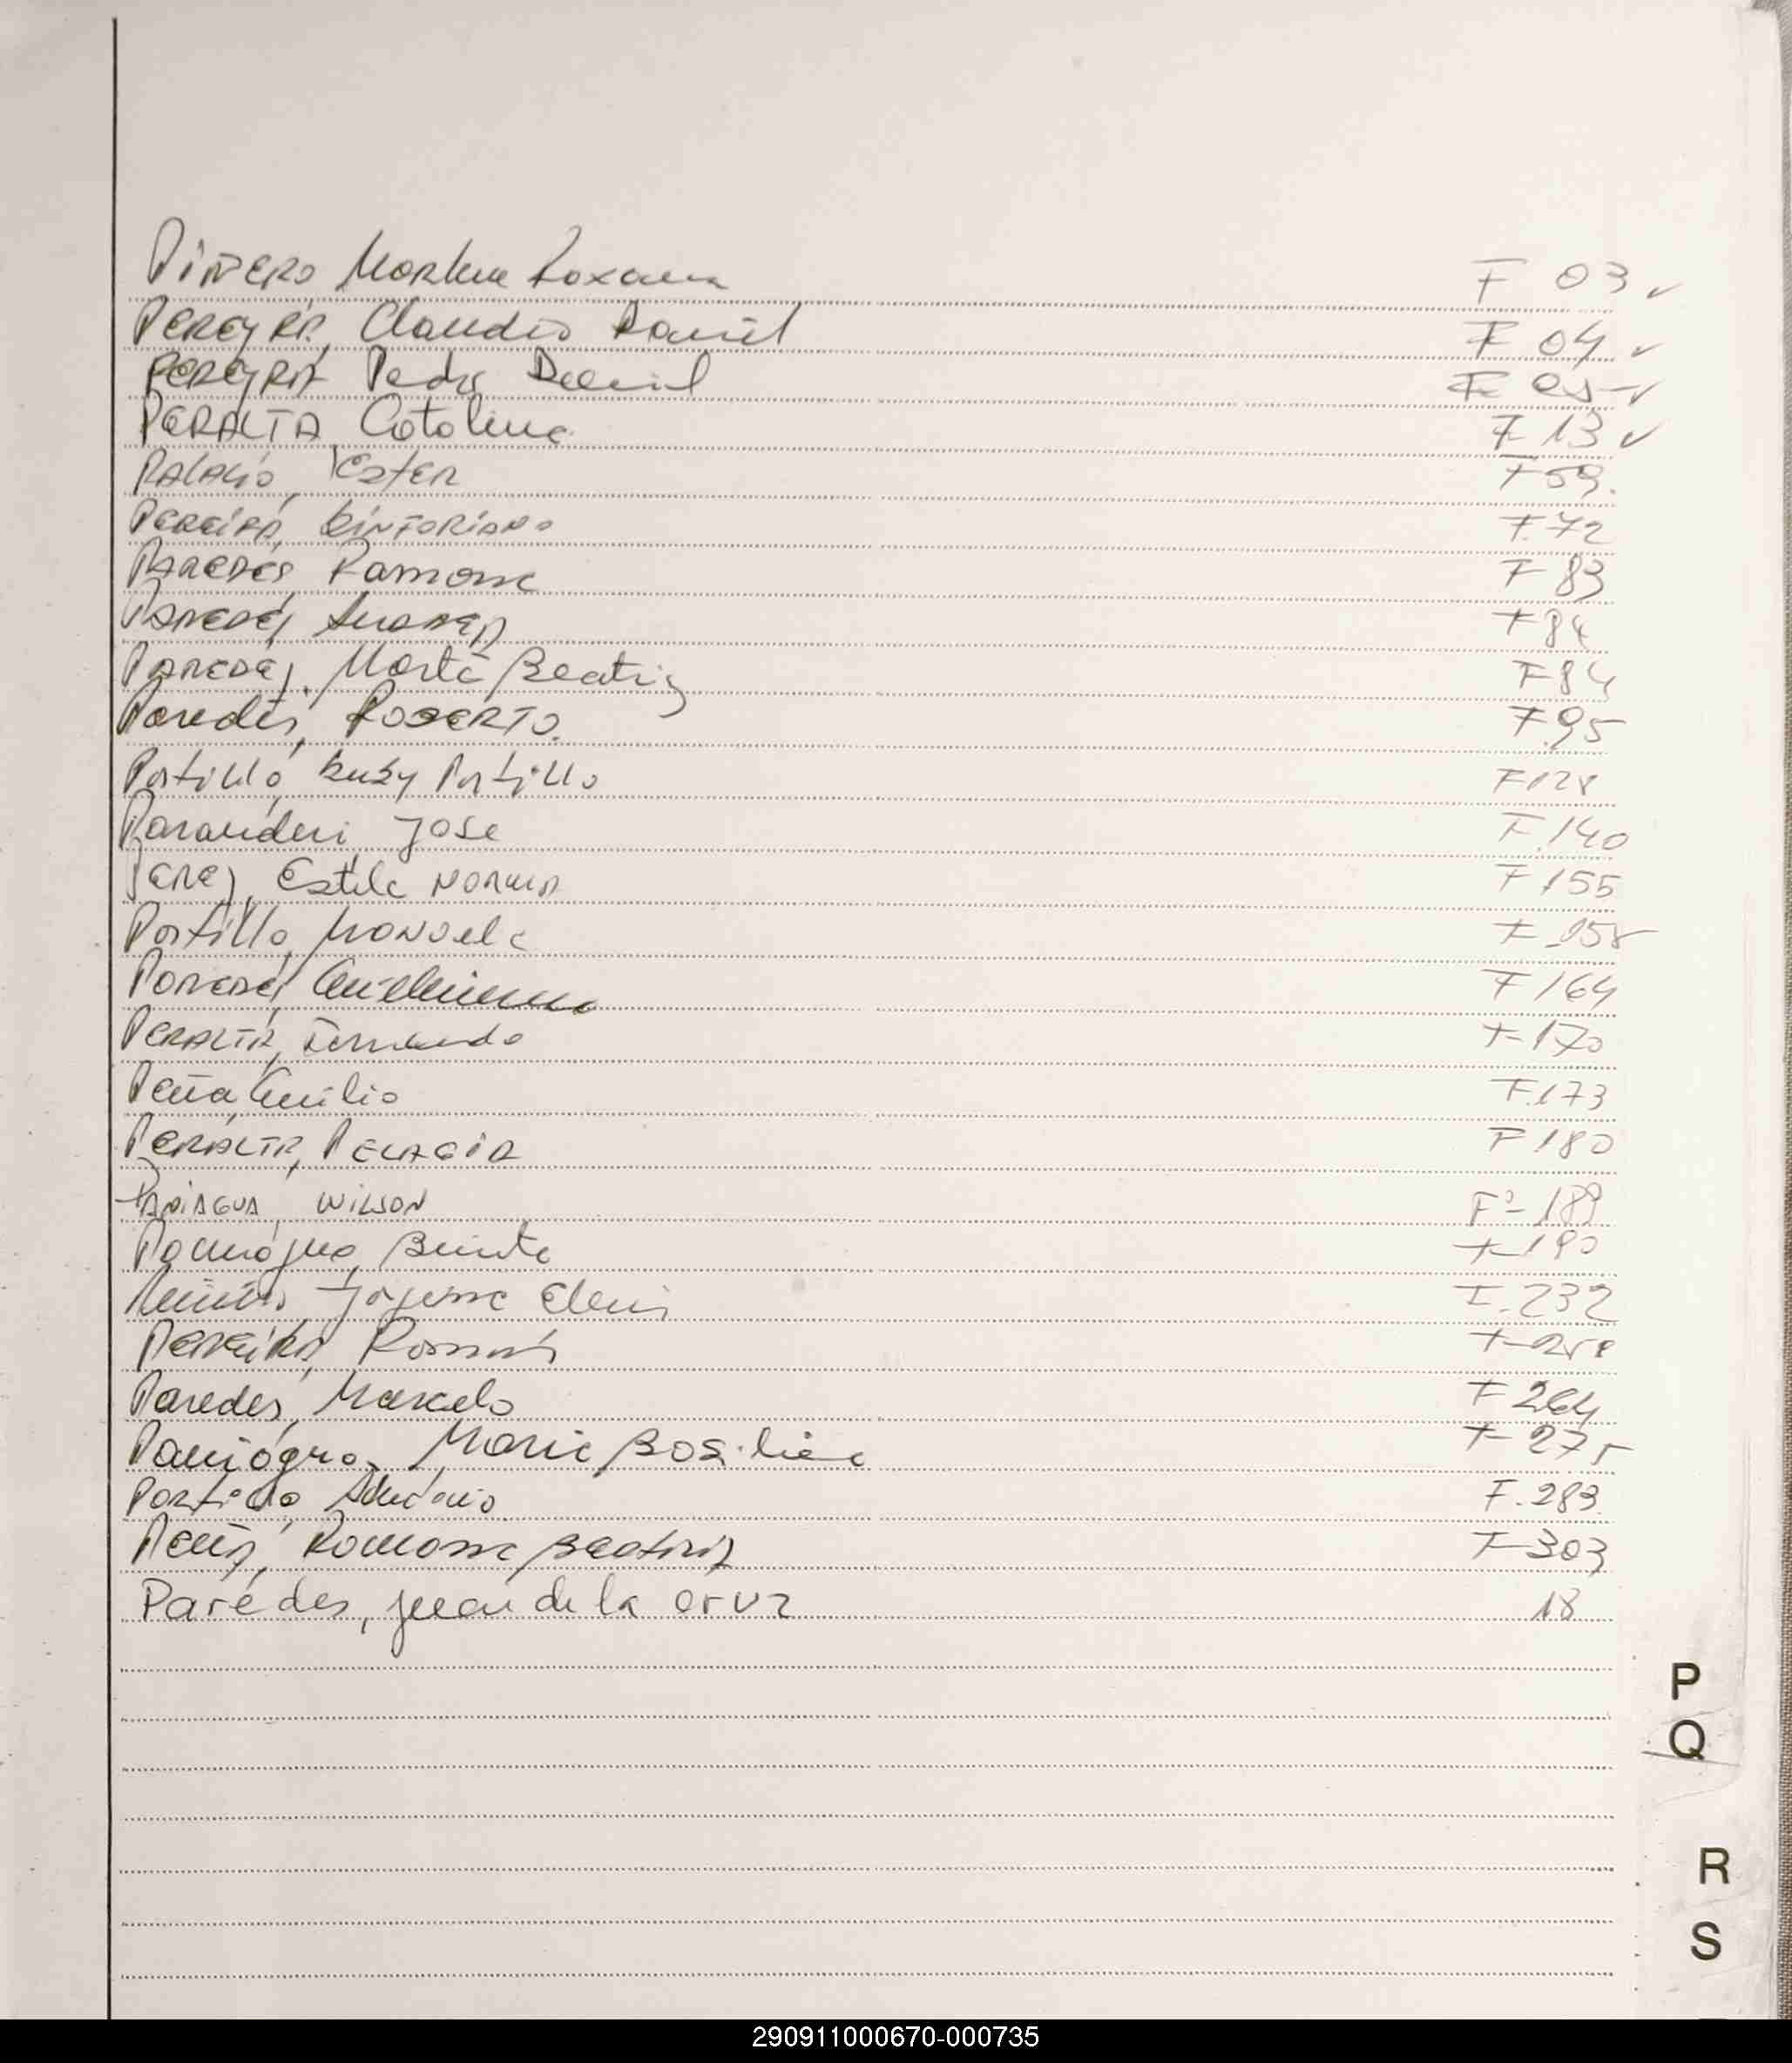 PIÑERO Roxana F 03 ✓
PEREYRA, Claudio Daniel F 04 ✓
PEREYRA Pedro Daniel F 05 ✓
PERALTA, Catalina F 13 ✓
PALACIO, Ester F 59.
PEREIRA, F.72
PAREDES, Ramona F 83
PAREDES, F 84
PAREDES, Marta Beatriz F 84
Paredes, ROBERTO. F.95
Portillo, Portillo F 128
José F.140
Perez, Estela NORMA F 155
Portillo, Manuela F 158
PAREDES, F 164
PERALTA, Fernando F 170
Peña, Emilio F.173
PERALTA, PELAGIA F 180
PANIAGUA, WILSON F° - 189
Paniagua, F 190
F.232
PEREIRA, Román F
Paredes, Marcelo F 264
Paniagua, Maria F 275
Portillo, Antonio F.283
Peña, Ramona Beatriz F 303
Paredes, Juan de la cruz 18
P
Q
R
S
290911000670-000735